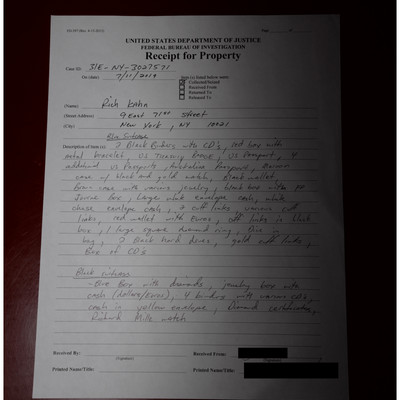 UNITED STATES DEPARTMENT OF JUSTICE
FEDERAL BUREAU OF INVESTIGATION
Receipt for Property
Case ID: 31E-NY-3027571
On (date) 7/11/2019
item (s) listed below were:
Collected/Seized
Received From
Returned To
Released To
(Name) Rich
(Street Address) 9 East 71st Street
(City) New York, NY 10021
Blue Suitcase
Description of Item (s): 2 Black Binders with CD's, red box with
bracelet, US Treasury, US Passport, 4
additional US Passports, Passport, Brown
case w/ black and gold watch, Black wallet,
Brown case with various jewelry, black box with
box, large white envelope cash, white
envelope cash, 2 cuff links, various cuff
links, red wallet with Euros, cuff links in black
box, 1 large square diamond ring, Blue
bag, 2 Black hard drives, gold cuff links,
Box of CD's
Black suitcase
- Box with diamonds, jewelry box with
cash (dollars/Euros), 4 binders with various CD's,
cash in yellow envelope, Diamond
Richard Mille watch
Received By:
(Signature)
Received From:
(Signature)
Printed Name/Title:
Printed Name/Title: